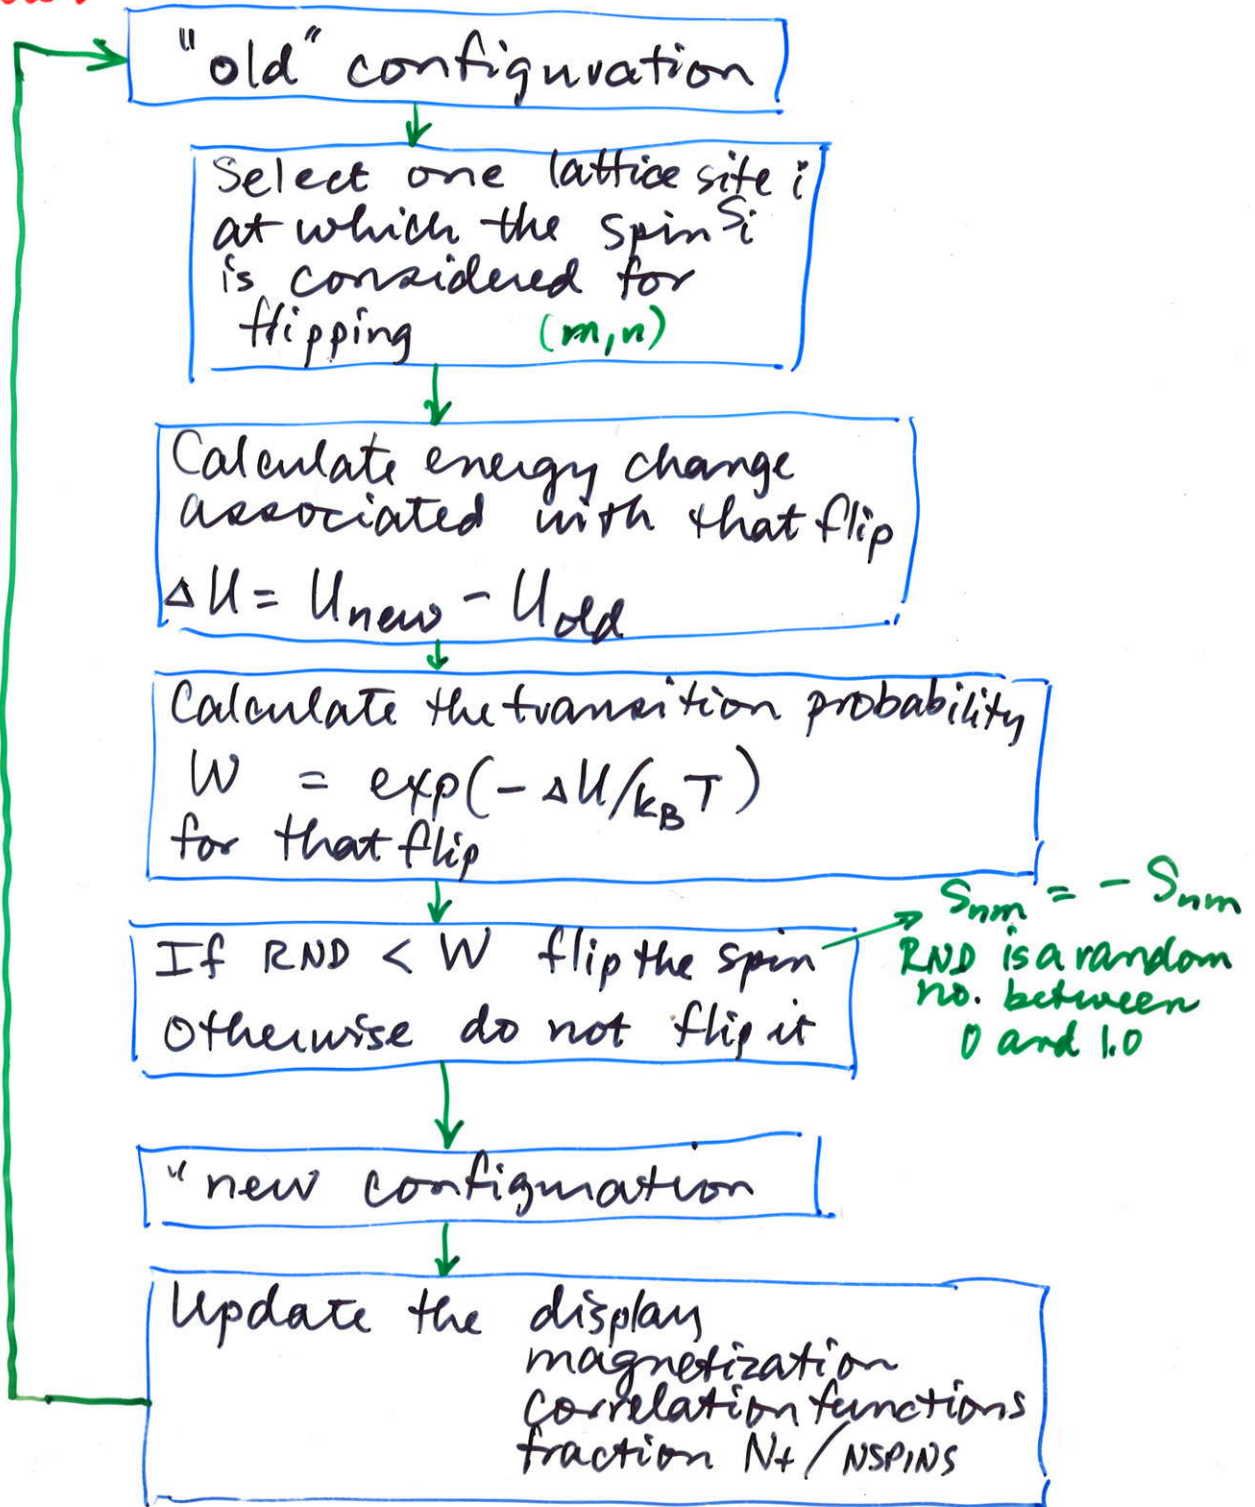 "old" configuration
Select one lattice site i
at which the spin Si
is considered for
flipping (m,n)
Calculate energy change
associated with that flip
ΔU = Unew - Uold
Calculate the transition probability
W = exp(-ΔU/kBT)
for that flip
Snm = - Snm
If RND < W flip the spin
RND is a random
no. between
otherwise do not flip it
0 and 1.0
"new configuration
Update the display
magnetization
correlation functions
fraction N+/NSPINS